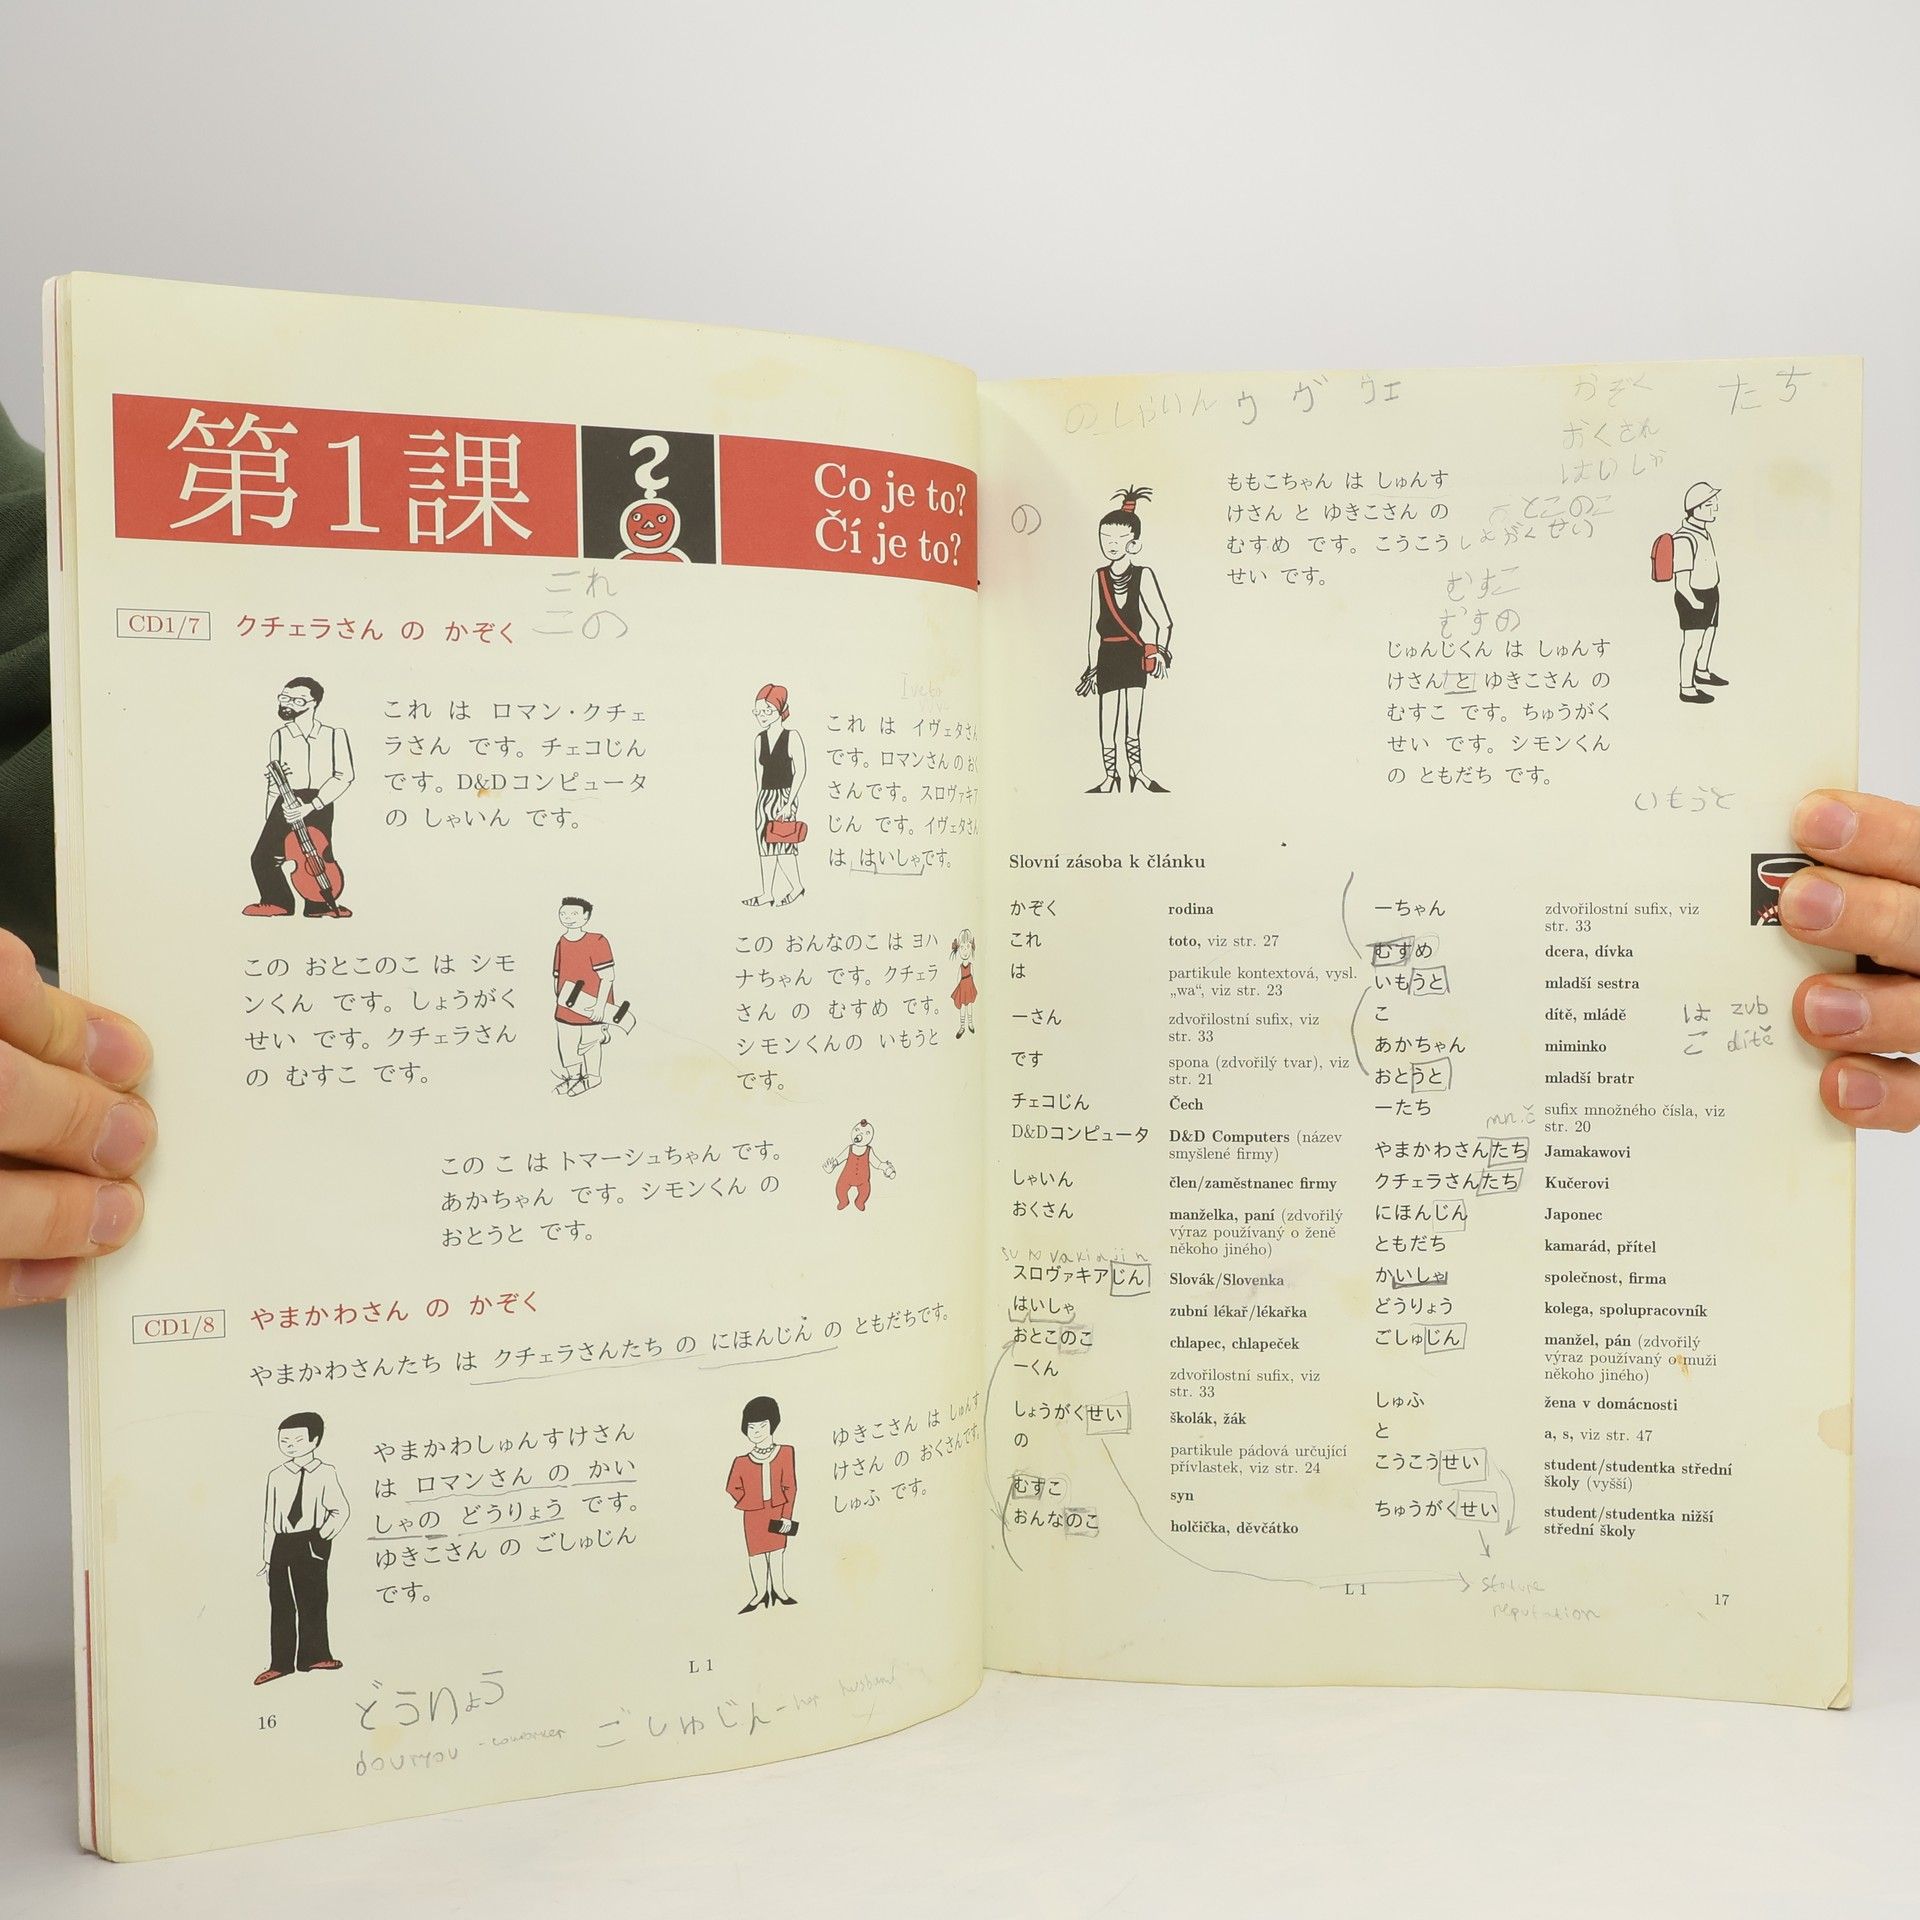 第1課
Co je to?
Čí je to?
これ
この
CD1/7 クチェラさん の かぞく
これ は ロマン・クチェ
ラさん です。チェコじん
です。D&Dコンピュータ
の しゃいん です。
Iveta
これ は イヴェタさん
です。ロマンさん の おく
さんです。スロヴァキア
じん です。イヴェタさん
は はいしゃです。
この おとこのこ は シモ
ンくん です。しょうがく
せい です。クチェラさん
の むすこ です。
この おんなのこ は ヨハ
ナちゃん です。クチェラ
さん の むすめ です。
シモンくんの いもうと
です。
この こ は トマーシュちゃん です。
あかちゃん です。シモンくん の
おとうと です。
CD1/8 やまかわさん の かぞく
やまかわさんたち は クチェラさんたち の にほんじん の ともだちです。
やまかわしゅんすけさん
は ロマンさん の かい
しゃの どうりょう です。
ゆきこさん の ごしゅじん
です。
ゆきこさん は しゅんす
けさん の おくさんです。
しゅふ です。
L 1
16
どうりょう
douryou - coworker
ごしゅじん - her husband
のしゃいん ウ ヴ ウェ
かぞく
たち
おくさん
はいしゃ
とこのこ
しょがくせい
の
ももこちゃん は しゅんす
けさん と ゆきこさん の
むすめ です。こうこう
せい です。
むすこ
むすの
じゅんじくん は しゅんす
けさん と ゆきこさん の
むすこ です。ちゅうがく
せい です。シモンくん
の ともだち です。
いもうと
Slovní zásoba k článku
かぞく rodina
これ toto, viz str. 27
は partikule kontextová, vysl.
„wa“, viz str. 23
ーさん zdvořilostní sufix, viz
str. 33
です spona (zdvořilý tvar), viz
str. 21
チェコじん Čech
D&Dコンピュータ D&D Computers (název
smyšlené firmy)
しゃいん člen/zaměstnanec firmy
おくさん manželka, paní (zdvořilý
výraz používaný o ženě
někoho jiného)
suvakiajin
スロヴァキアじん Slovák/Slovenka
はいしゃ zubní lékař/lékařka
おとこのこ chlapec, chlapeček
ーくん zdvořilostní sufix, viz
str. 33
しょうがくせい školák, žák
の partikule pádová určující
přívlastek, viz str. 24
むすこ syn
おんなのこ holčička, děvčátko
ーちゃん zdvořilostní sufix, viz
str. 33
むすめ dcera, dívka
いもうと mladší sestra
こ dítě, mládě
は zub
こ dítě
あかちゃん miminko
おとうと mladší bratr
ーたち sufix množného čísla, viz
str. 20
mn.č
やまかわさんたち Jamakawovi
クチェラさんたち Kučerovi
にほんじん Japonec
ともだち kamarád, přítel
かいしゃ společnost, firma
どうりょう kolega, spolupracovník
ごしゅじん manžel, pán (zdvořilý
výraz používaný o muži
někoho jiného)
しゅふ žena v domácnosti
と a, s, viz str. 47
こうこうせい student/studentka střední
školy (vyšší)
ちゅうがくせい student/studentka nižší
střední školy
reputation
L 1
17